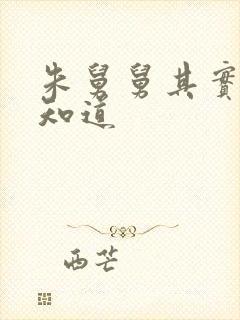 朱舅舅其實
知道
西芒